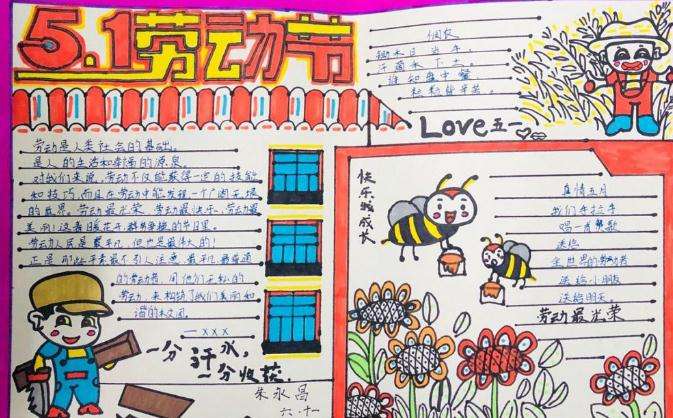 5.1劳动节
劳动是人类社会的基础。
是人的生活和幸福的源泉。
对我们来说,劳动不仅能获得一定的技能
和技巧,而且在劳动中能发现一个广阔无垠
的世界。劳动最光荣,劳动最快乐,劳动最
美丽!这春暖花开
的节日里。
劳动人民是最平凡,但也是最伟大的!
正是那些平素最不引人注意,最平凡最普通
的劳动者,用他们无私的
劳动,来构筑了我们美丽和
谐的校风
一xxx
一分汗水,
一分收获.
朱永昌
六.十一
悯农
锄禾日当午,
汗滴禾下土。
谁知盘中餐
粒粒皆辛苦。
Love五一
快乐成长
真情五月
我们手拉手
唱一首赞歌
送给
全世界的劳动者
送给小朋友
送给明天
劳动最光荣